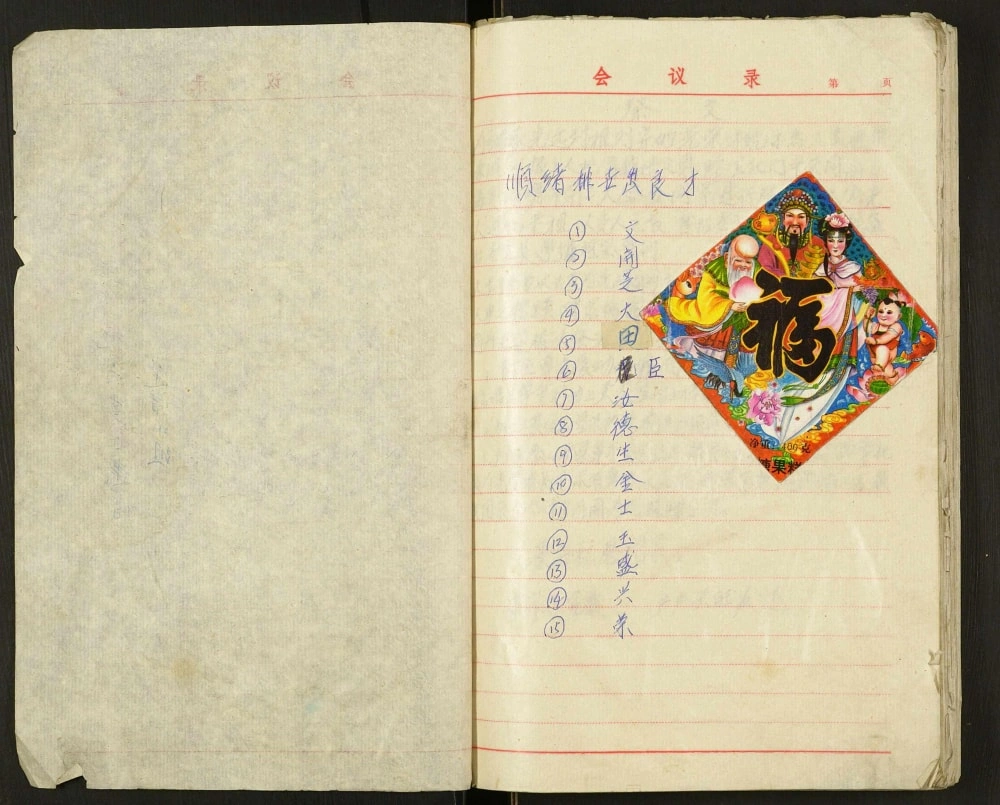 会议录 第 页
順绪排去发良才
① 文
② 闻
③ 芝
④ 大
⑤ 田
⑥ 臣
⑦ 汝
⑧ 德
⑨ 生
⑩ 金
⑪ 士
⑫ 玉
⑬ 盛
⑭ 兴
⑮ 荣
福
净重 400克
果